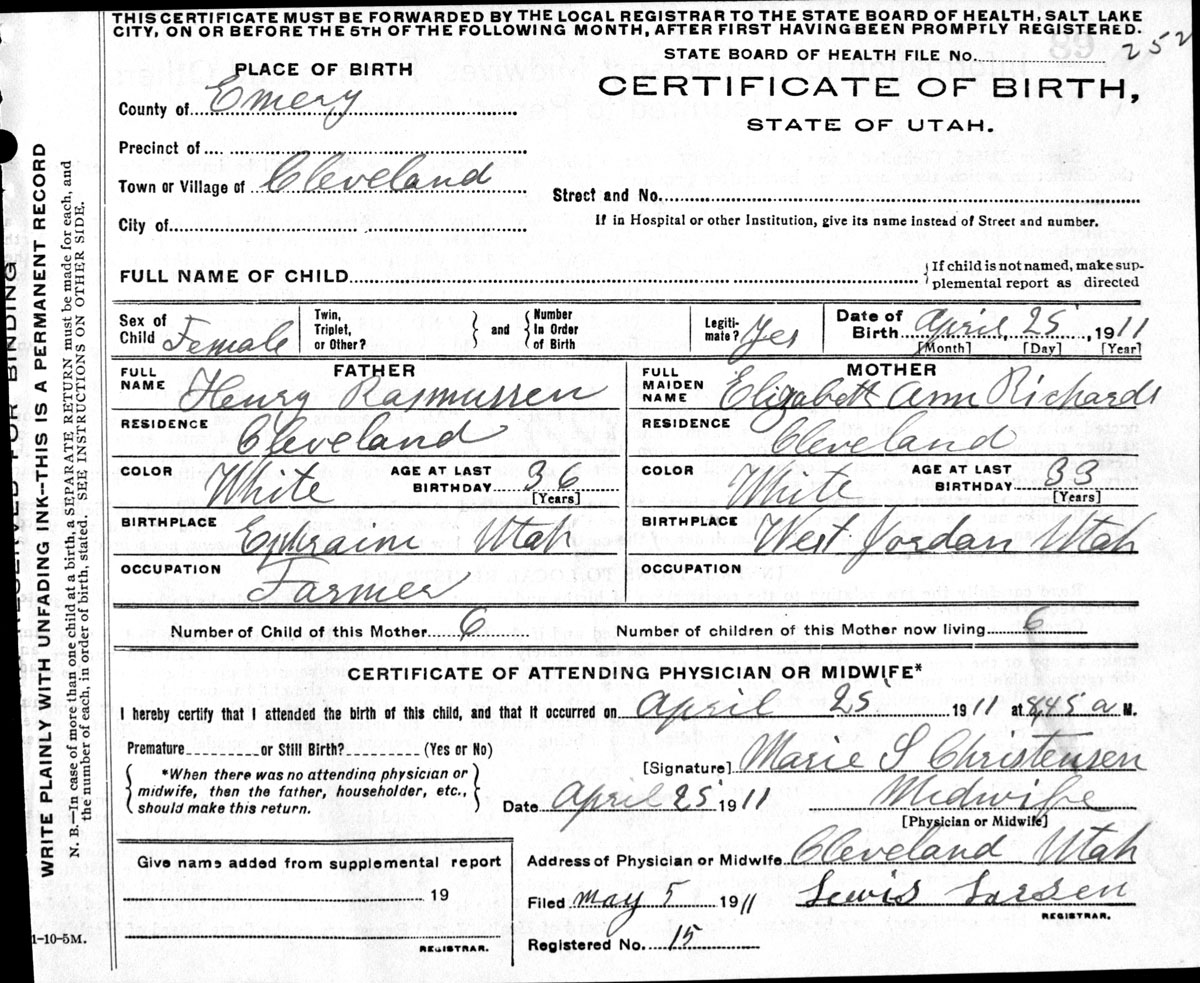 THIS CERTIFICATE MUST BE FORWARDED BY THE LOCAL REGISTRAR TO THE STATE BOARD OF HEALTH, SALT LAKE
CITY, ON OR BEFORE THE 5TH OF THE FOLLOWING MONTH, AFTER FIRST HAVING BEEN PROMPTLY REGISTERED.
STATE BOARD OF HEALTH FILE No. 252
PLACE OF BIRTH
CERTIFICATE OF BIRTH,
STATE OF UTAH.
County of Emery
Precinct of
Town or Village of Cleveland
Street and No.
City of
If in Hospital or other Institution, give its name instead of Street and number.
FULL NAME OF CHILD
If child is not named, make sup-
plemental report as directed
Sex of Child Female
Twin, Triplet, or Other? and Number In Order of Birth
Legiti-mate? Yes
Date of Birth April, 25, 1911
[Month] [Day] [Year]
FATHER
FULL NAME Henry Rasmussen
RESIDENCE Cleveland
COLOR White AGE AT LAST BIRTHDAY 36 [Years]
BIRTHPLACE Ephraim Utah
OCCUPATION Farmer
MOTHER
FULL MAIDEN NAME Elizabeth Ann Richards
RESIDENCE Cleveland
COLOR White AGE AT LAST BIRTHDAY 33 [Years]
BIRTHPLACE West Jordan Utah
OCCUPATION
Number of Child of this Mother 6 Number of children of this Mother now living 6
CERTIFICATE OF ATTENDING PHYSICIAN OR MIDWIFE*
I hereby certify that I attended the birth of this child, and that it occurred on April 25 1911 at 8,45 a M.
Premature or Still Birth? (Yes or No)
*When there was no attending physician or
midwife, then the father, householder, etc.,
should make this return.
[Signature] Marie S Christensen
Date April 25 1911 Midwife
[Physician or Midwife]
Address of Physician or Midwife Cleveland Utah
Filed May 5 1911 Lewis Larsen
REGISTRAR.
Registered No. 15
Give name added from supplemental report
19
REGISTRAR.
1-10-5M.
RESERVED FOR BINDING
WRITE PLAINLY WITH UNFADING INK--THIS IS A PERMANENT RECORD
N. B.—In case of more than one child at a birth, a SEPARATE RETURN must be made for each, and
the number of each, in order of birth, stated. SEE INSTRUCTIONS ON OTHER SIDE.